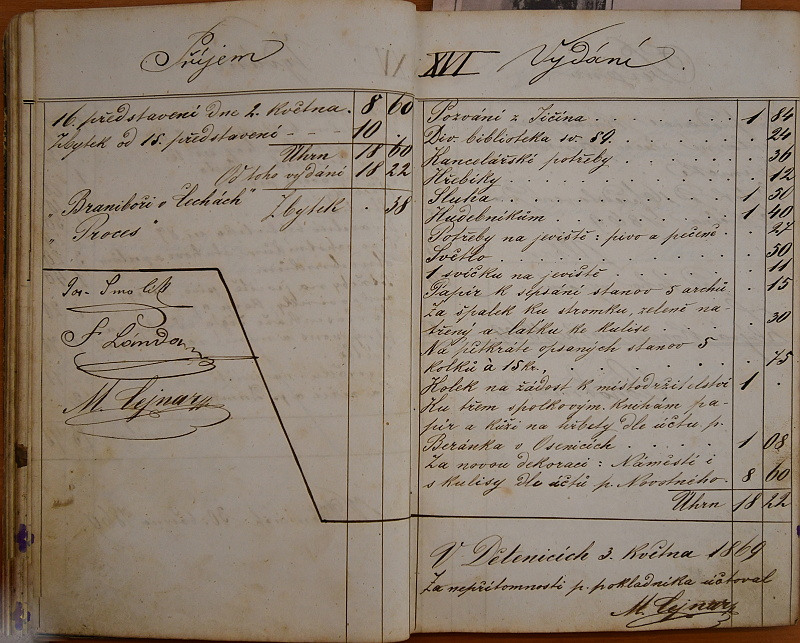 Příjem
16. představení dne 2. května. 8 60
Zbytek od 15. představení - - - 10 .
Úhrn 18 60
Od toho vydání 18 22
"Braniboři v Čechách" Zbytek . 38
"Proces"
Jos. Smolík
F. Lánda
M. Lejnar
XVI Vydání
Pozvání z Jičína . . . . 1 84
Div. biblioteka sv. 59. . . . 24
Kancelářské potřeby . . . . 36
Hřebíky . . . . 12
Sluha . . . . 1 50
Hudebníkům . . . . 1 40
Potřeby na jeviště: pivo a pečeně 27
Světlo . . . . 50
1 svíčku na jeviště . . . . 11
Papír k sepsání stanov 5 archů 15
Za špalek ku stromku, zeleně na-
třený a latku ke kulise . . 30
Na pětkráte opsaných stanov 5
kolků à 15 kr. . . . . 75
Kolek na žádost k místodržitelství 1 .
Ku třem spolkovým knihám pa-
pír a kůži na hřbety dle účtu p.
Beránka v Osenicích . . . . 1 08
Za novou dekoraci: Náměstí i
s kulisy dle účtů p. Novotného. 8 60
Úhrn 18 22
V Dětenicích 3. května 1869
Za nepřítomnosti p. pokladníka účtoval
M. Lejnar